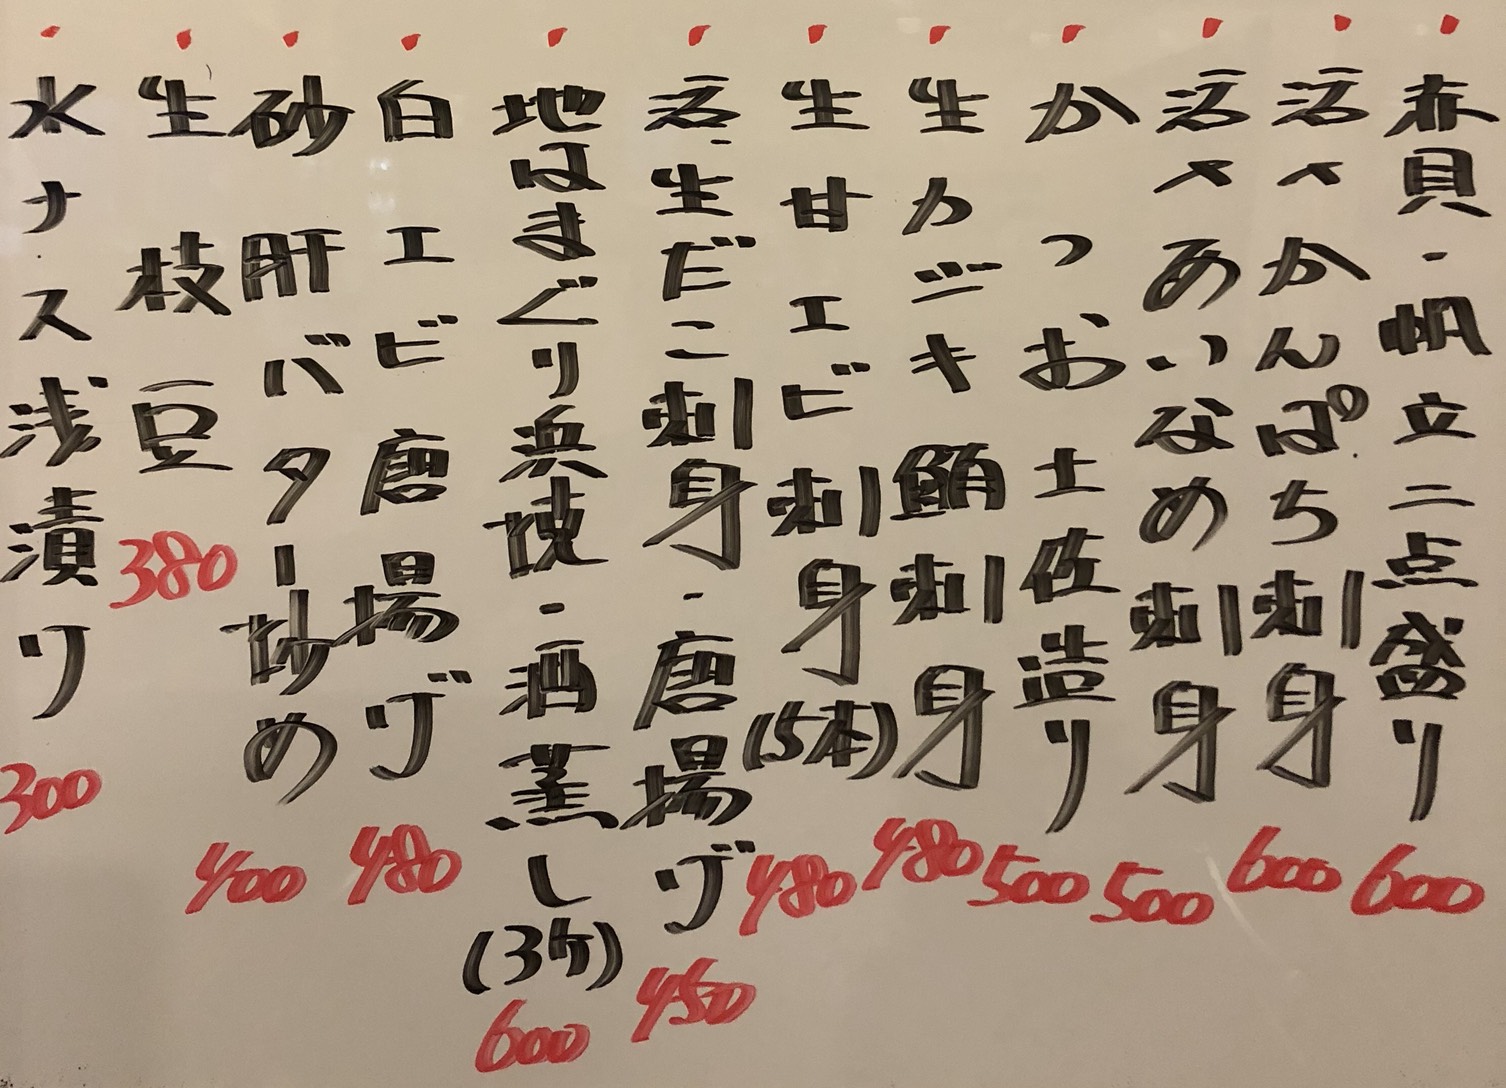 ・赤貝・帆立二点盛り 600
・活〆かんぱち刺身 600
・活〆あいなめ刺身 500
・かつお土佐造り 500
・生カジキ鮪刺身 480
・生甘エビ刺身(5本) 480
・活生だこ刺身・唐揚げ 450
・地はまぐり浜焼・酒蒸し(3ケ) 600
・白エビ唐揚げ 480
・砂肝バター炒め 400
・生枝豆 380
・水ナス浅漬り 300